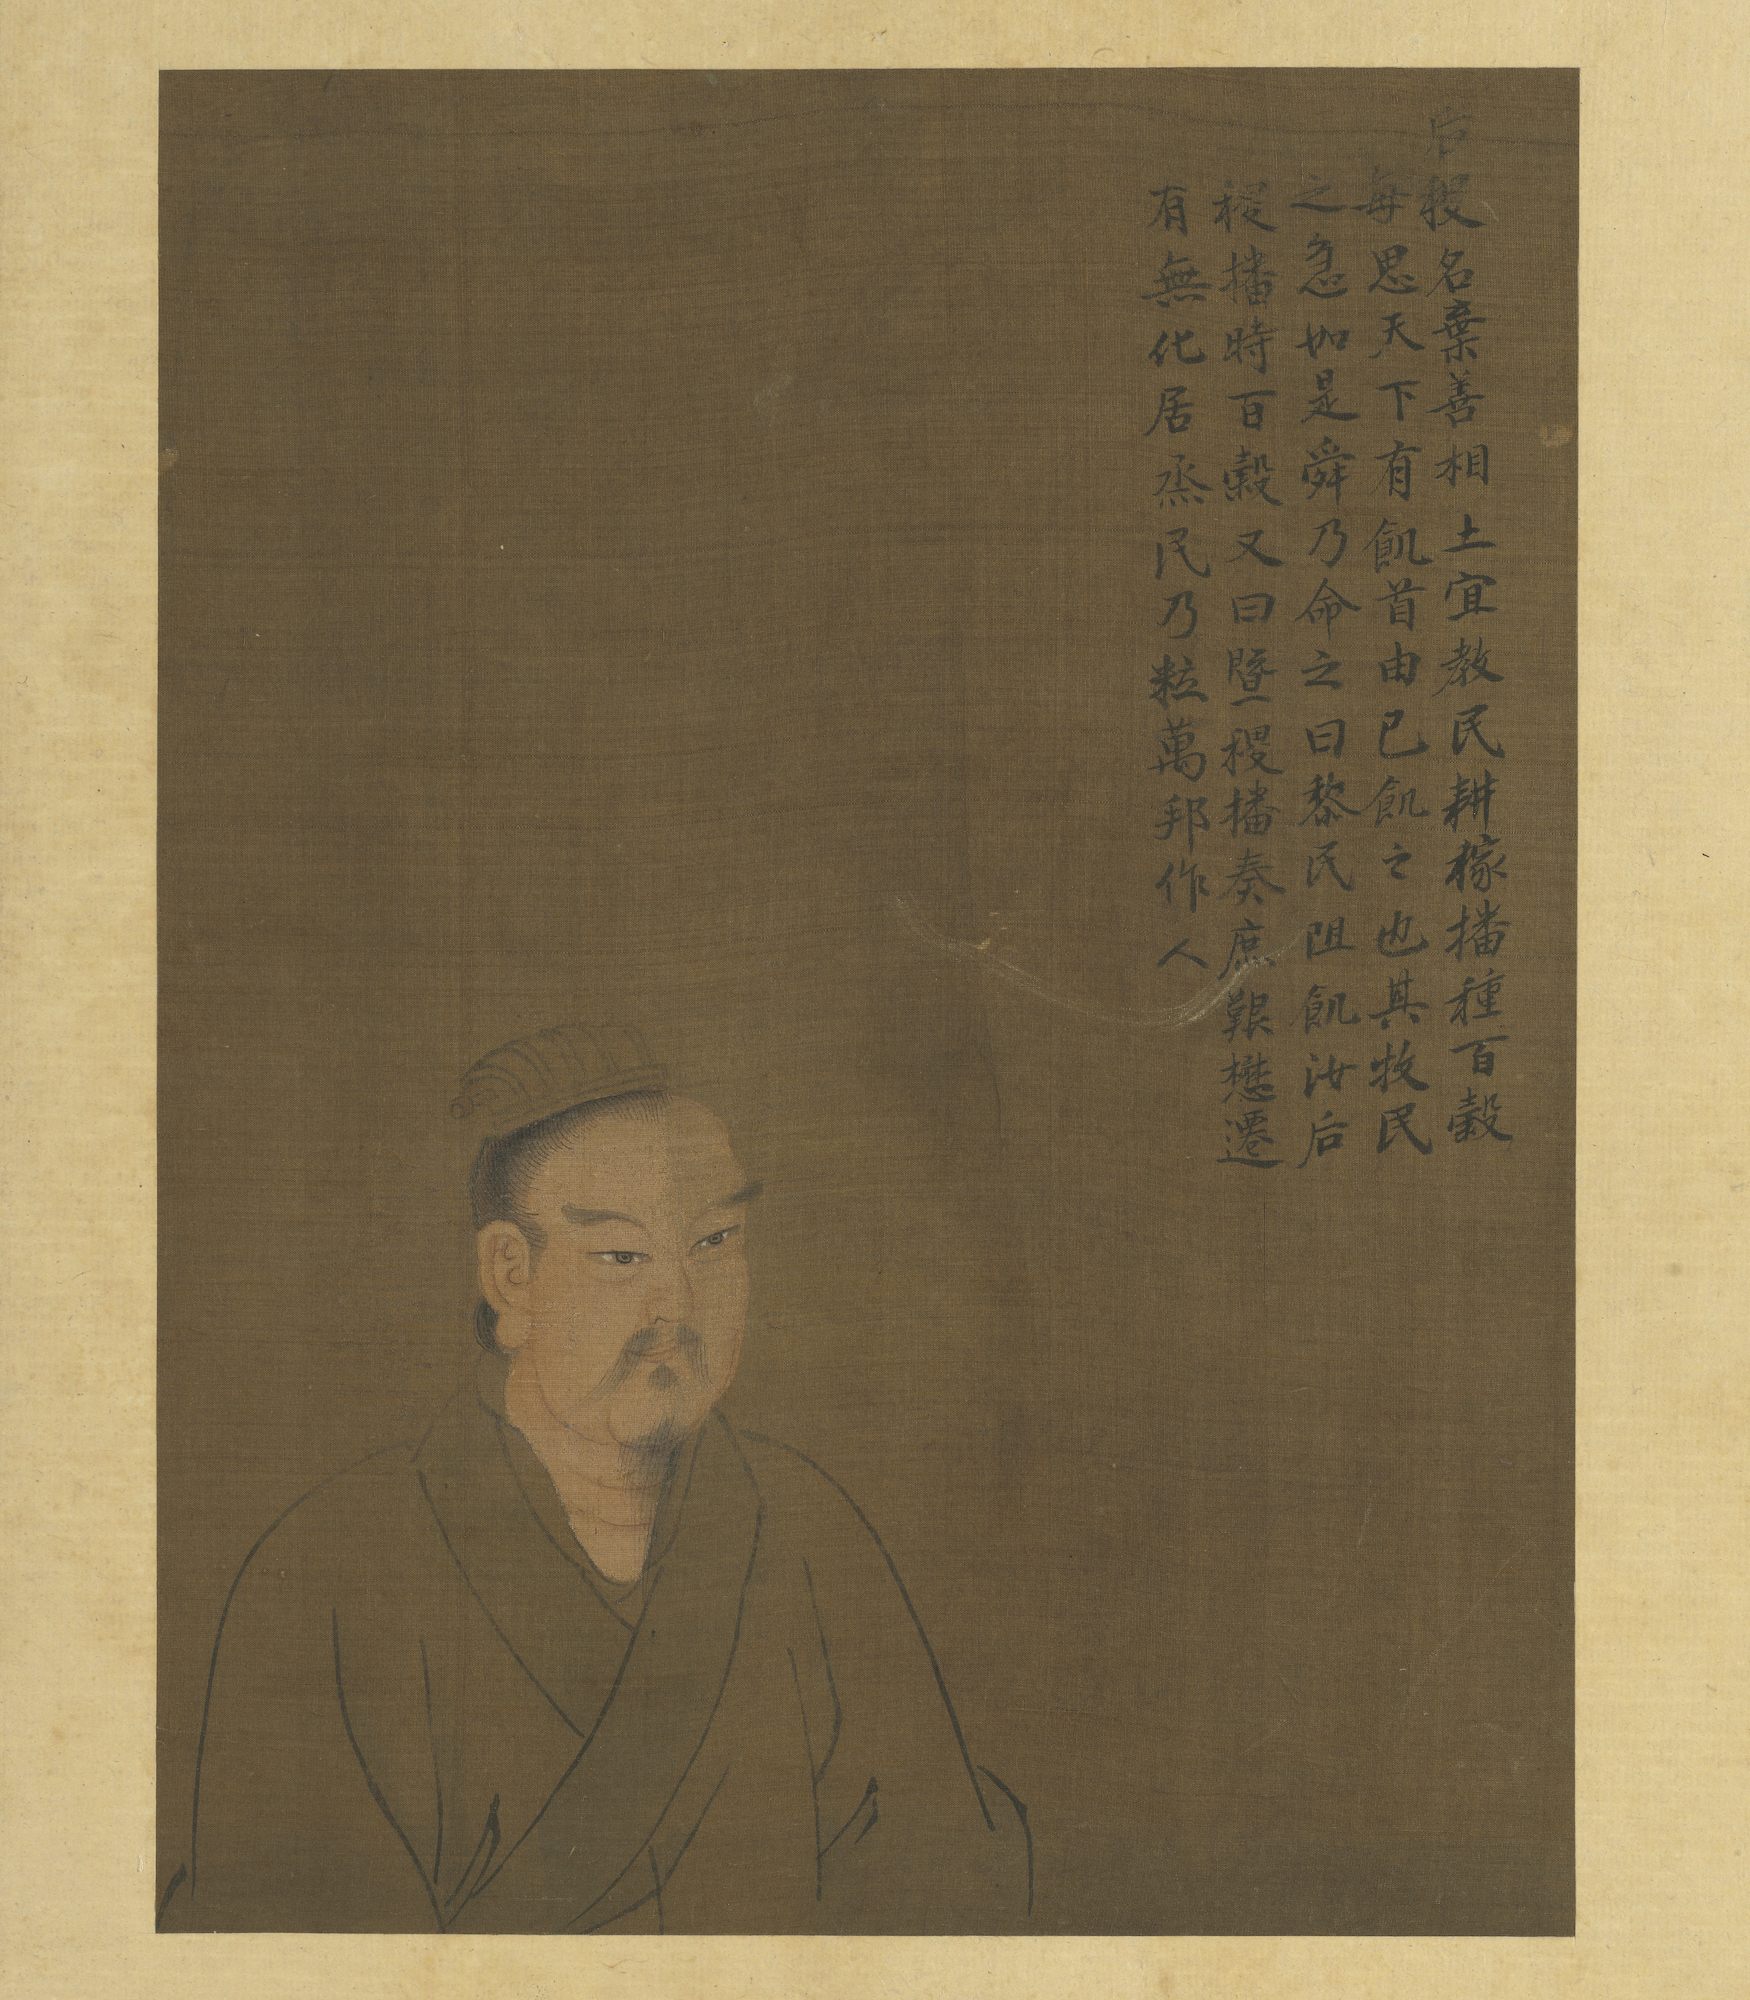 后稷名棄善相土宜教民耕稼播種百穀
每思天下有飢首由己飢之也其牧民
之急如是舜乃命之曰黎民阻飢汝后
稷播時百穀又曰曁稷播奏庶艱懋遷
有無化居烝民乃粒萬邦作人